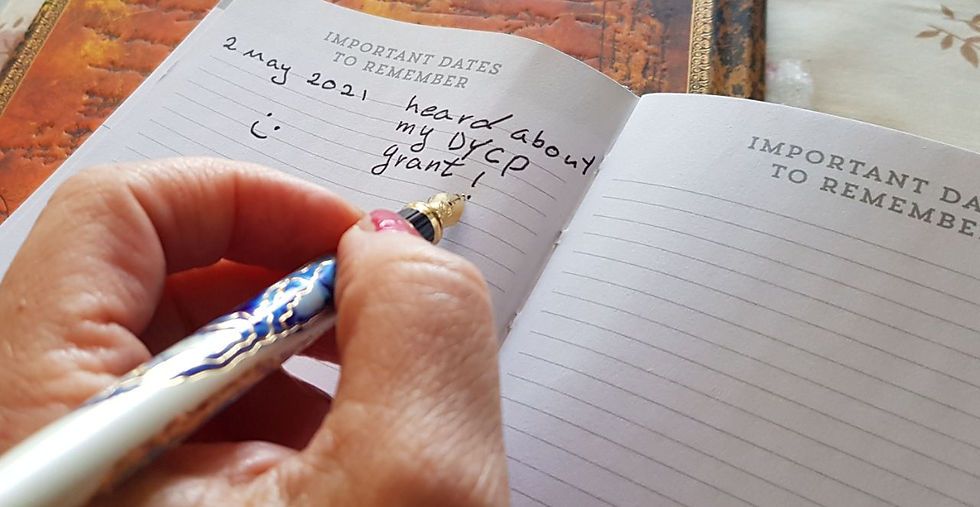 IMPORTANT DATES
TO REMEMBER
2 May 2021 heard about
my DYCP
grant!
IMPORTANT DA
TO REMEMBE